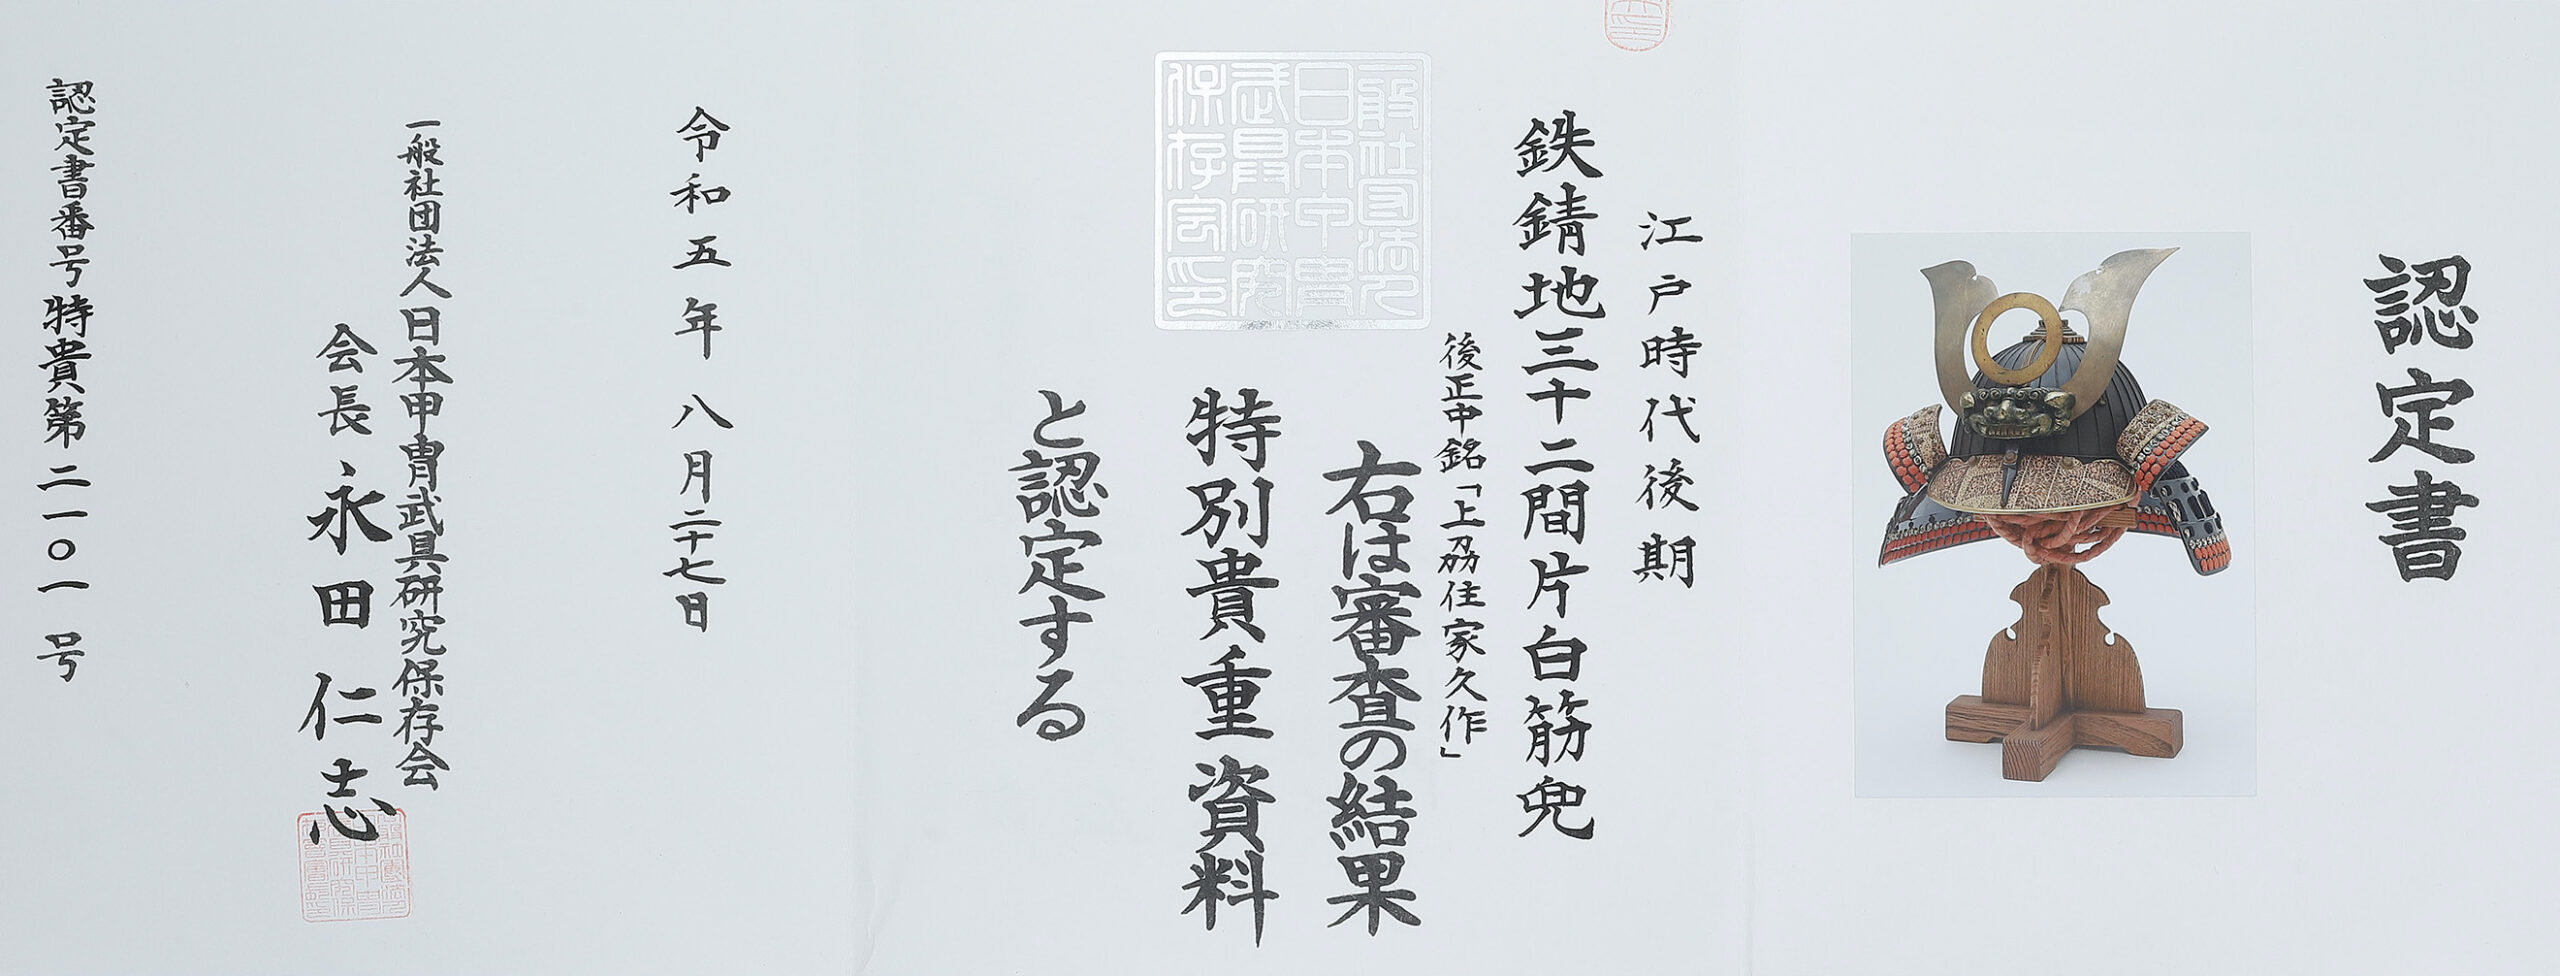 認定書
江戸時代後期
鉄錆地三十二間片白筋兜
後正中銘「上刕住家久作」
右は審査の結果
特別貴重資料
と認定する
一般社団法人日本甲冑武具研究保存会印
令和五年八月二十七日
一般社団法人日本甲冑武具研究保存会
会長、永田仁志
認定書番号特貴第二一〇一号